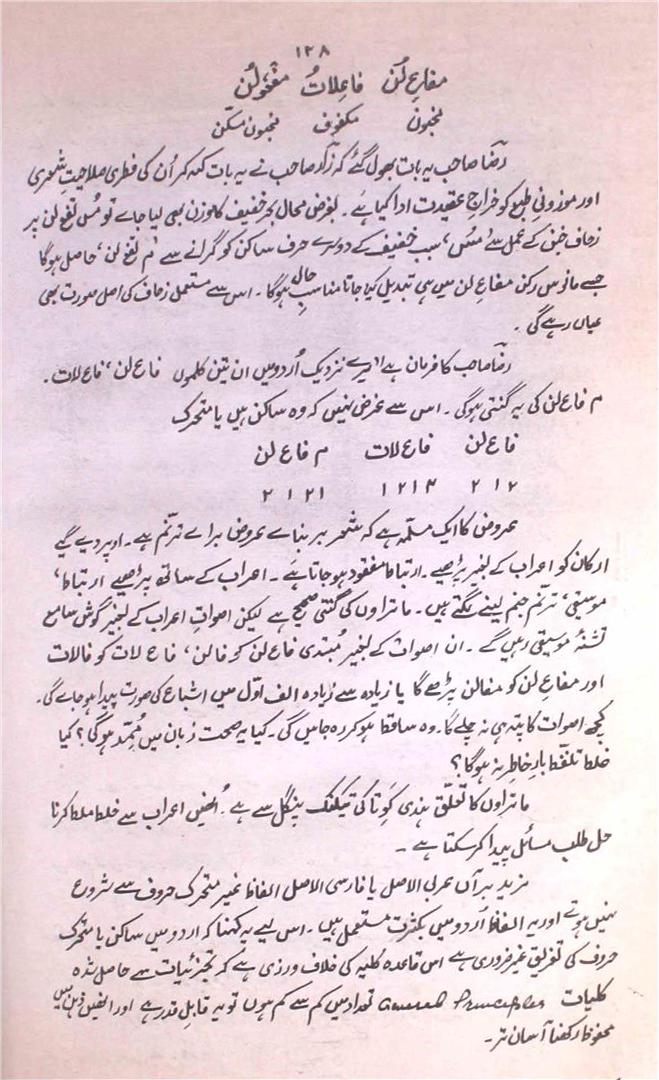 ۱۲۸
مفاعِ لُن فاعِلاتُ مفعُولُن
مخبون مکفوف مخبون مسکّن
رضا صاحب یہ بات بھول گئے کہ زار صاحب نے یہ بات کہہ کر اُن کی فطری صلاحیت شعری
اور موزونیِ طبع کو خراجِ عقیدت ادا کیا ہے۔ بفرضِ محال بحرِ خفیف کا وزن بھی لیا جائے تو مُس تفع لن پر
زحاف خبن کے عمل سے مُس، سببِ خفیف کے دوسرے حرف ساکن کو گرانے سے م تفع لن، حاصل ہوگا
جسے مانوس رکن مفاعِ لن میں ہی تبدیل کیا جانا مناسبِ حال ہوگا۔ اس سے مستعمل زحاف کی اصل صورت بھی
عیاں رہے گی۔
رضا صاحب کا فرمان ہے "میرے نزدیک اُردو میں ان تین کلموں فاع لن، فاع لات۔
م فاع لن کی یہ گنتی ہوگی۔ اس سے غرض نہیں کہ وہ ساکن ہیں یا متحرک
فاع لن فاع لات م فاع لن
۲ ۱ ۲ ۱ ۲ ۱ ۲ ۲ ۱ ۲ ۱
عروض کا ایک مسلّمہ ہے کہ شعر بر بنائے عروض برائے ترنّم ہے۔ اوپر دیے گیے
ارکان کو اعراب کے بغیر پڑھیے۔ ارتباط مفقود ہو جاتا ہے۔ اعراب کے ساتھ پڑھیے ارتباط،
موسیقی، ترنّم جنم لینے لگتے ہیں۔ ماتراوں کی گنتی صحیح ہے لیکن اصواتِ اعراب کے بغیر گوش سامع
تشنۂ موسیقی رہیں گے۔ ان اصوات کے بغیر مُبتدی فاع لن کو فالن، فاع لات کو فالات
اور مفاعِ لن کو مفالن پڑھے گا یا زیادہ سے زیادہ الف اوّل میں اشباع کی صورت پیدا ہو جائے گی۔
کچھ اصوات کا پتہ ہی نہ چلے گا۔ وہ ساقط ہو کر رہ جائیں گی۔ کیا یہ صحت زبان میں مُمِد ہوگا؟ کیا
غلط تلفّظ بارِ خاطر نہ ہوگا؟
ماتراوں کا تعلّق ہندی کَوِتا کی تیکنک پنگل سے ہے۔ اُنھیں اعراب سے خلط ملط کرنا
حل طلب مسائل پیدا کر سکتا ہے۔
مزید برآں عربی الاصل یا فارسی الاصل الفاظ غیر متحرک حروف سے شروع
نہیں ہوتے اور یہ الفاظ اُردو میں بکثرت مستعمل ہیں۔ اس لیے یہ کہنا کہ اردو میں ساکن یا متحرک
حروف کی تفریق غیر ضروری ہے اس قاعدہ کلیہ کی خلاف ورزی ہے کہ تجزئیات سے حاصل شدہ
کلیات General Principles تعداد میں کم سے کم ہوں تو یہ قابلِ قدر ہے اور انھیں ذہن میں
محفوظ رکھنا آسان تر۔